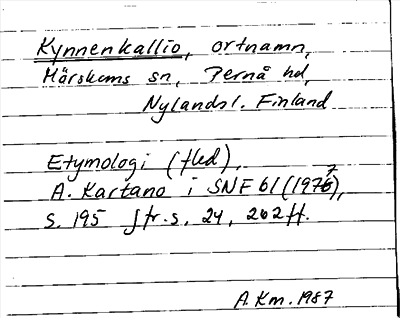 Kynnenkallio, ortnamn,
Mörskoms sn, Pernå hd,
Nylandsl. Finland
Etymologi (fled).
A. Kartano i SNF 61 (1977),
s. 195 jfr s. 24, 202 ff.
A.Km. 1987